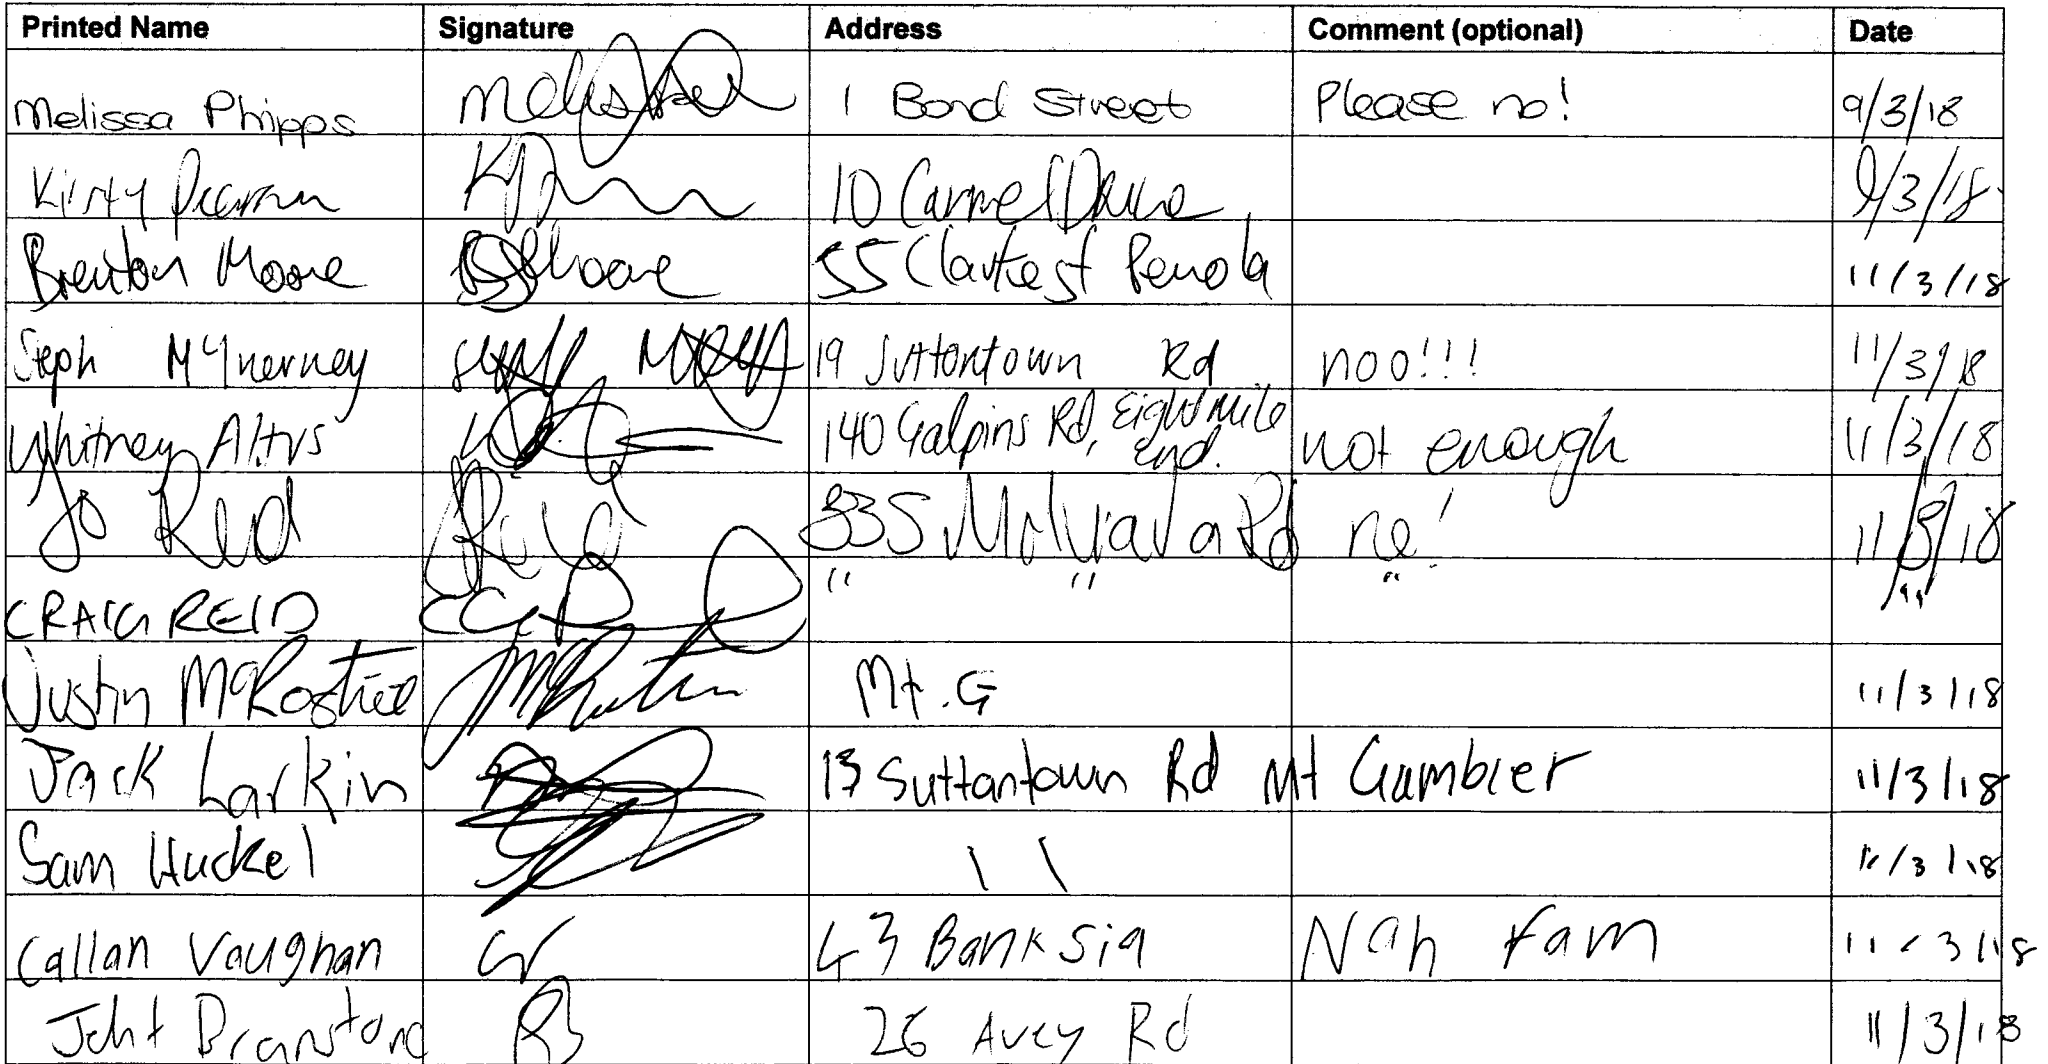 Printed Name Signature Address Comment (optional) Date
Melissa Phipps 1 Bond Street Please no! 9/3/18
Kirsty 10 Carmel Drive 9/3/18
Brenton Moore BJMoore 55 Clarke st Penola 11/3/18
Steph McInerney 19 Suttontown Rd noo!!! 11/3/18
Whitney Altus 140 Galpins Rd, Eight mile
end. not enough 11/3/18
Jo Reid 335 Rd no! 11/3/18
CRAIG REID " " " "
Justin McRostie Mt. G 11/3/18
Jack Larkin 13 Suttontown Rd Mt Gambier 11/3/18
Sam Huckel \ \ 11/3/18
Callan Vaughan CV 43 Banksia Nah fam 11/3/18
26 Avey Rd 11/3/18